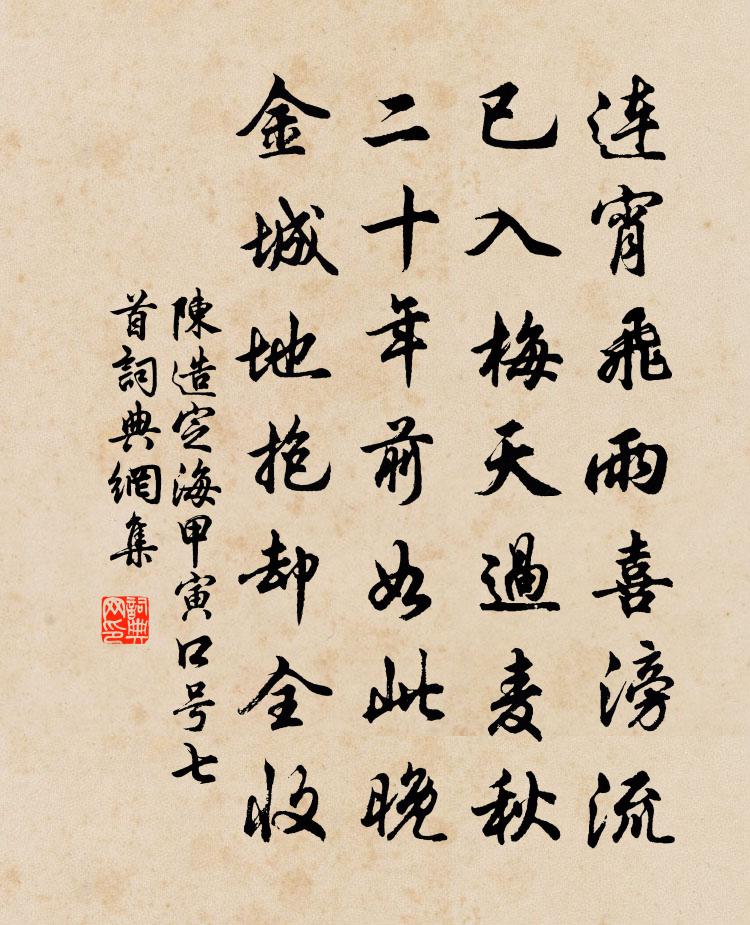 連宵飛雨喜滂流
已入梅天過麦秋
二十年前如此晚
金城地抱却全收
陳造定海甲寅口号七
首詞典網集
詞典
网印